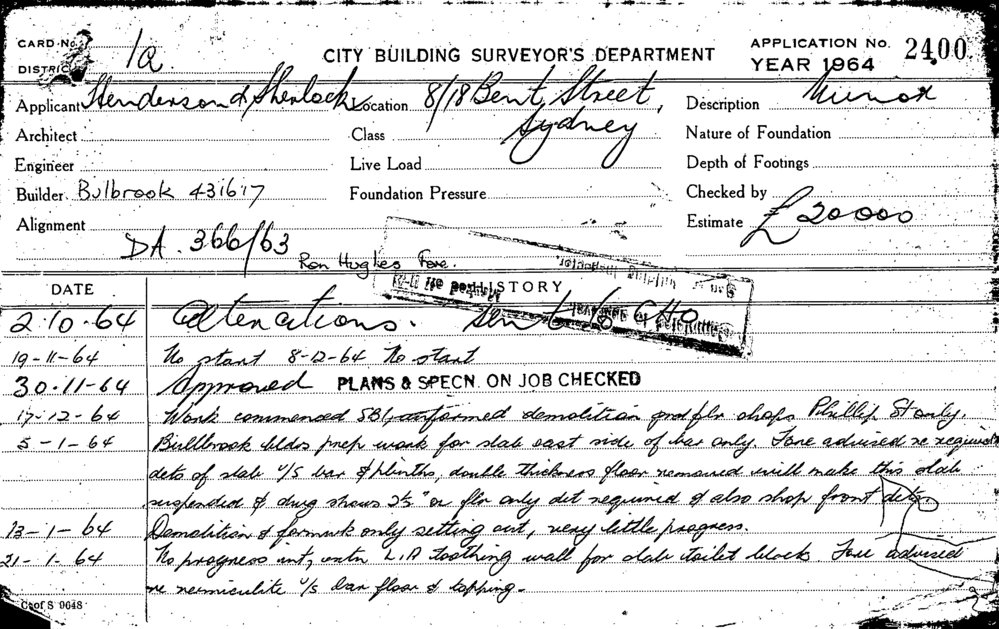 CARD No. 1a.
DISTRICT
CITY BUILDING SURVEYOR'S DEPARTMENT
APPLICATION No. 2400
YEAR 1964
Applicant Henderson & Sherlock Location 8/18 Bent Street, Description Minor
Architect Class Sydney Nature of Foundation
Engineer Live Load Depth of Footings
Builder Bulbrook 431617 Foundation Pressure Checked by
Alignment Estimate £20000
DA. 366/63
Ron Hughes Fore.
DATE HISTORY
2.10.64 Alterations. Sent to
19-11-64 No start 8-12-64 No start
30.11-64 Approved PLANS & SPECN. ON JOB CHECKED
17-12-64 Work commenced demolition grd flr shops Phillip St only.
5-1-64 Bullbrook bldrs prep work for slab east side of bar only. Fore advised re required
dets of slab u/s bar & plinths, double thickness floor removed will make this slab
suspended & drwg shows 2½" or flr only det required & also shop front dets
13-1-64 Demolition & formwk only setting out, very little progress.
21-1-64 No progress int, extn L.I.P. toothing wall for slab toilet block. Fore advised
re vermiculite u/s bar floor & topping.
C. of S 9648